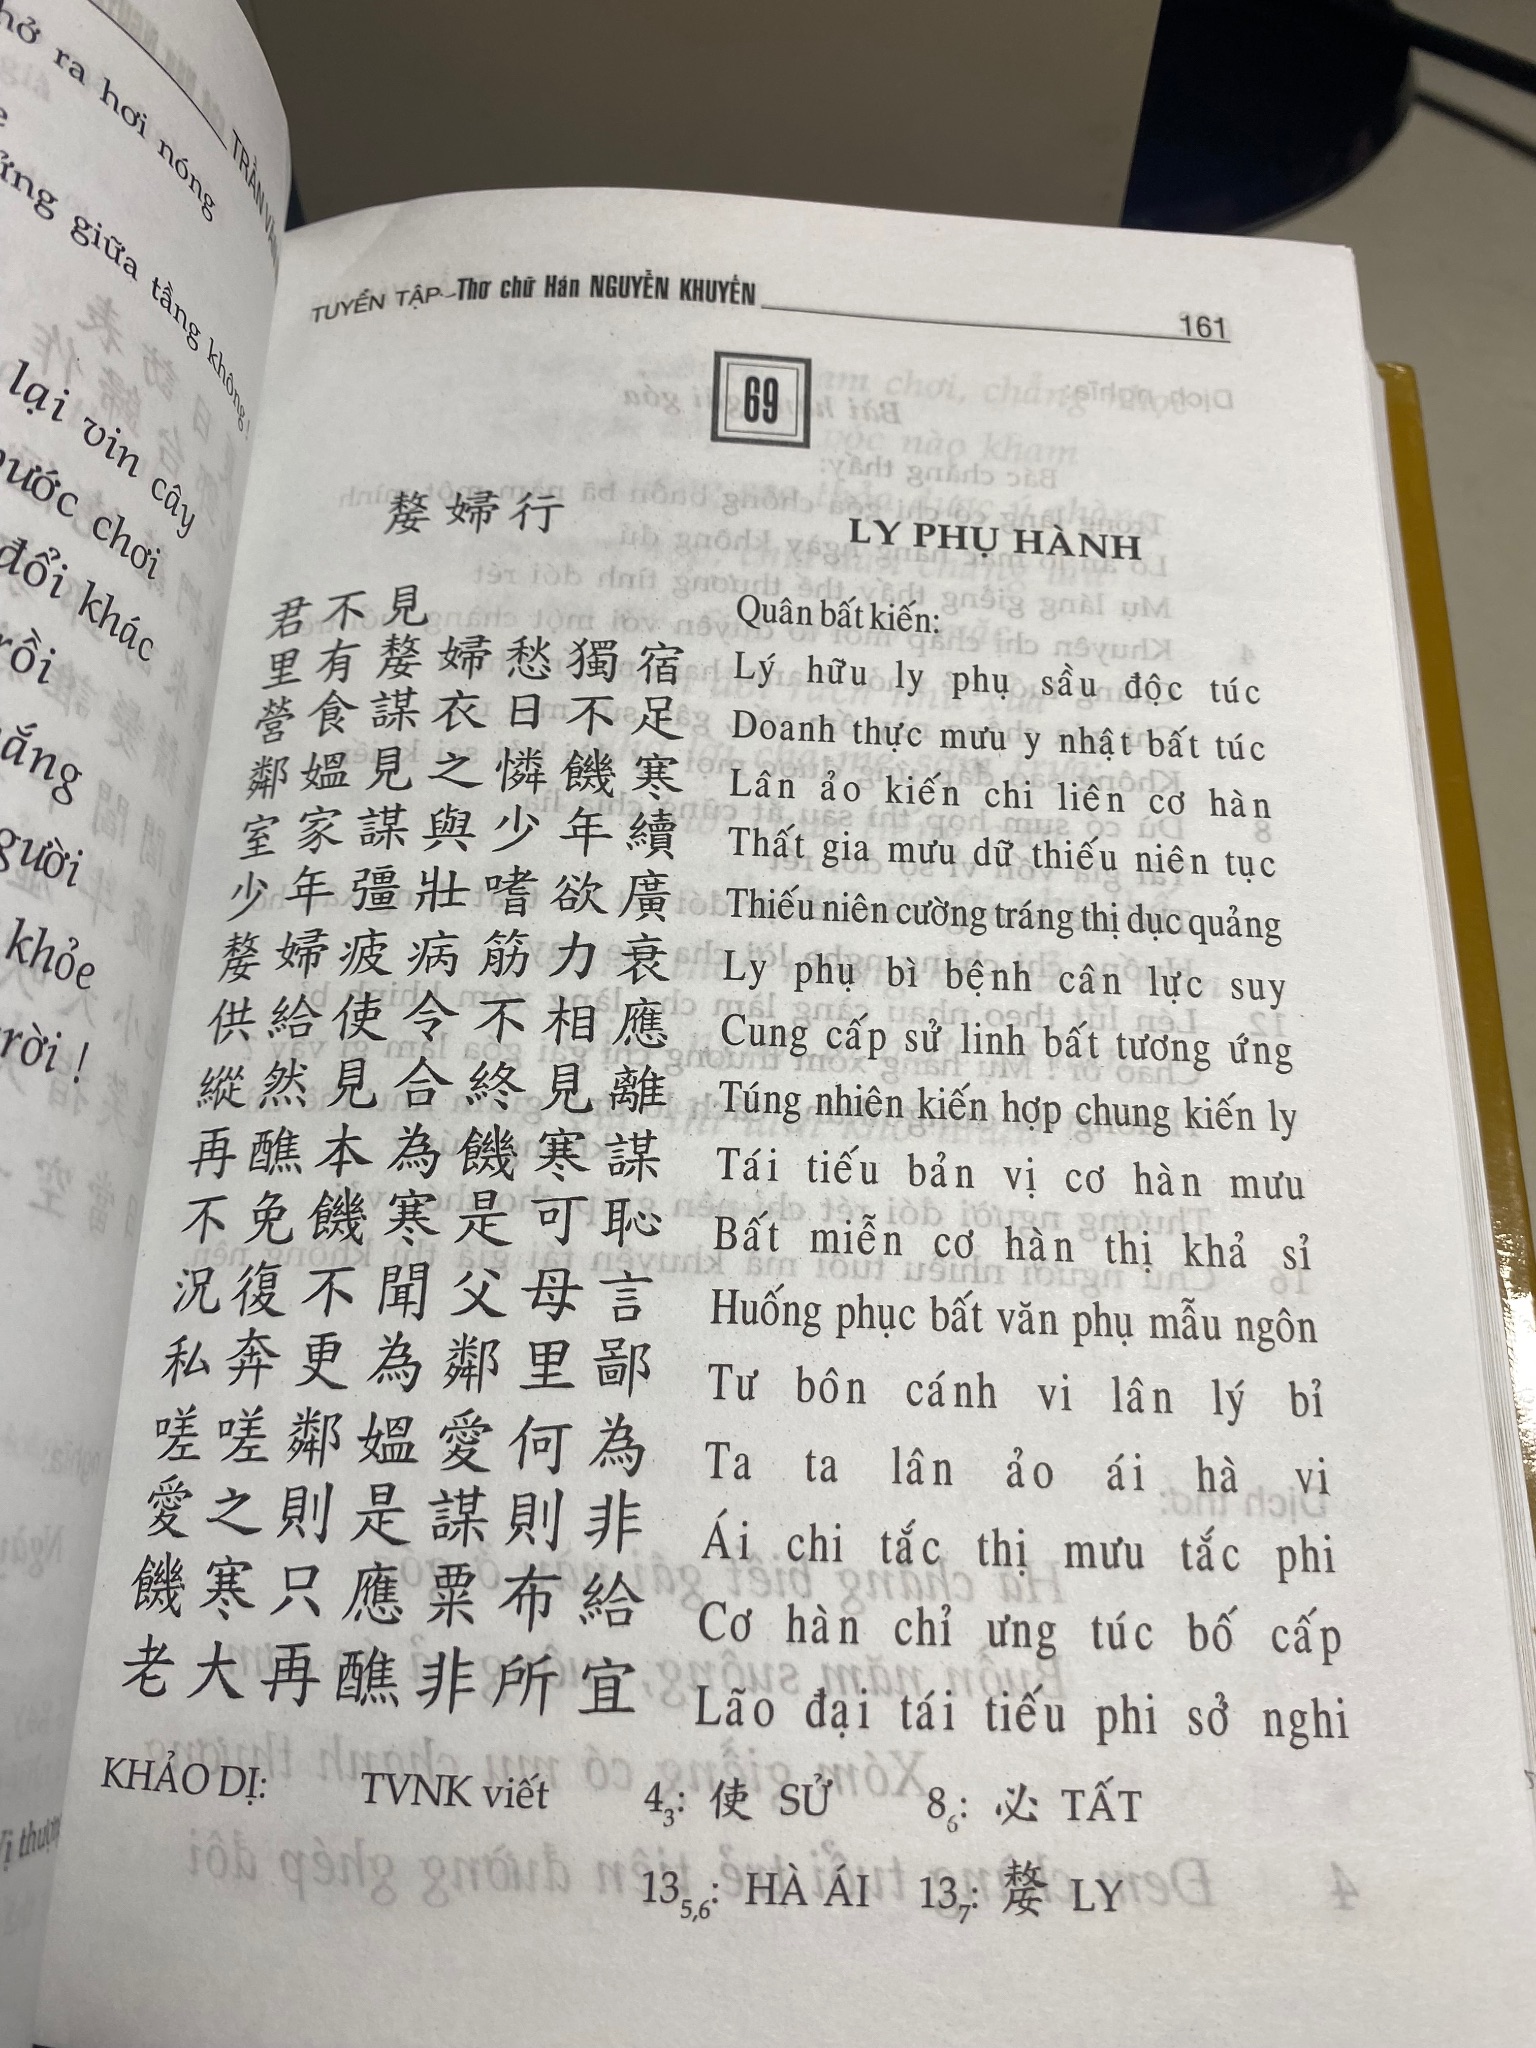 hở ra hơi nóng
ứng giữa tầng không!
lại vin cây
bước chơi
đổi khác
rồi
gười
khỏe
trời !
TUYỂN TẬP - Thơ chữ Hán NGUYỄN KHUYẾN 161
69
嫠婦行
君不見
里有嫠婦愁獨宿
營食謀衣日不足
鄰媼見之憐饑寒
室家謀與少年續
少年彊壯嗜欲廣
嫠婦疲病筋力衰
供給使令不相應
縱然見合終見離
再醮本為饑寒謀
不免饑寒是可恥
況復不聞父母言
私奔更為鄰里鄙
嗟嗟鄰媼愛何為
愛之則是謀則非
饑寒只應粟布給
老大再醮非所宜
LY PHỤ HÀNH
Quân bất kiến:
Lý hữu ly phụ sầu độc túc
Doanh thực mưu y nhật bất túc
Lân ảo kiến chi liên cơ hàn
Thất gia mưu dữ thiếu niên tục
Thiếu niên cường tráng thị dục quảng
Ly phụ bì bệnh cân lực suy
Cung cấp sử linh bất tương ứng
Túng nhiên kiến hợp chung kiến ly
Tái tiếu bản vị cơ hàn mưu
Bất miễn cơ hàn thị khả sỉ
Huống phục bất văn phụ mẫu ngôn
Tư bôn cánh vi lân lý bỉ
Ta ta lân ảo ái hà vi
Ái chi tắc thị mưu tắc phi
Cơ hàn chỉ ưng túc bố cấp
Lão đại tái tiếu phi sở nghi
KHẢO DỊ: TVNK viết 4₃: 使 SỬ 8₆: 必 TẤT
13₅,₆: HÀ ÁI 13₇: 嫠 LY